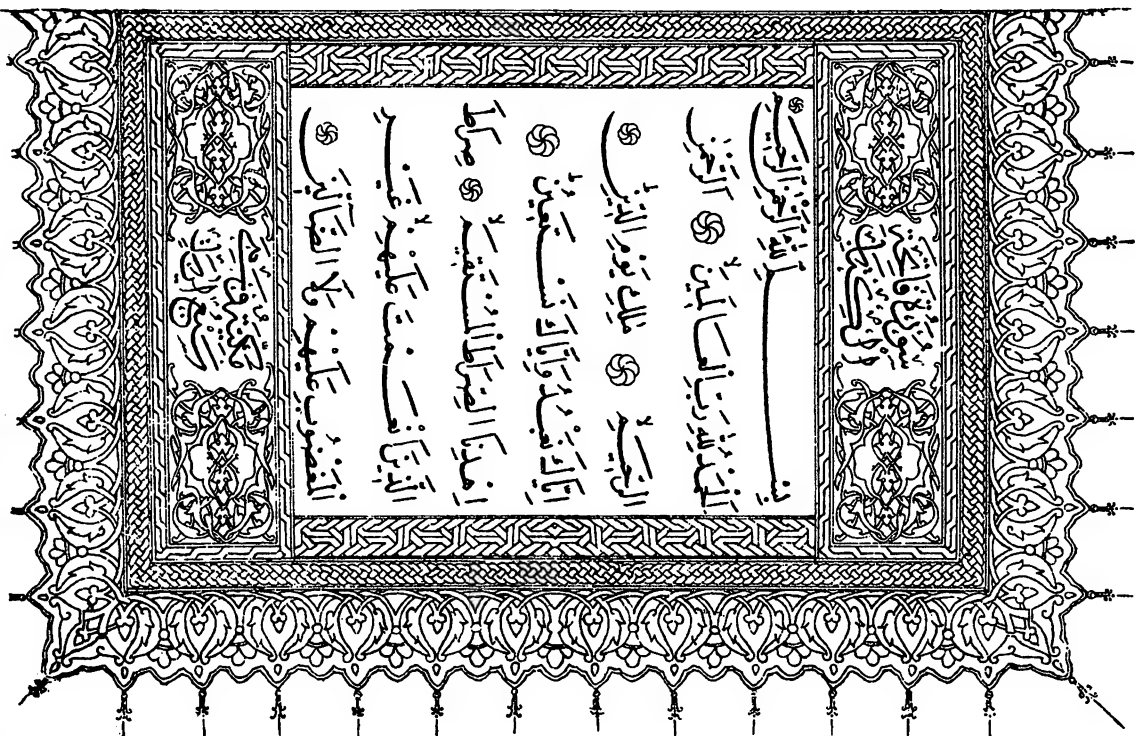 سُورَةُ فَاتِحَةِ
الْكِتَابِ
بِسْمِ اللَّهِ الرَّحْمَٰنِ الرَّحِيمِ
الْحَمْدُ لِلَّهِ رَبِّ الْعَالَمِينَ الرَّحْمَٰنِ
الرَّحِيمِ مَالِكِ يَوْمِ الدِّينِ
إِيَّاكَ نَعْبُدُ وَإِيَّاكَ نَسْتَعِينُ
اهْدِنَا الصِّرَاطَ الْمُسْتَقِيمَ صِرَاطَ
الَّذِينَ أَنْعَمْتَ عَلَيْهِمْ غَيْرِ
الْمَغْضُوبِ عَلَيْهِمْ وَلَا الضَّالِّينَ